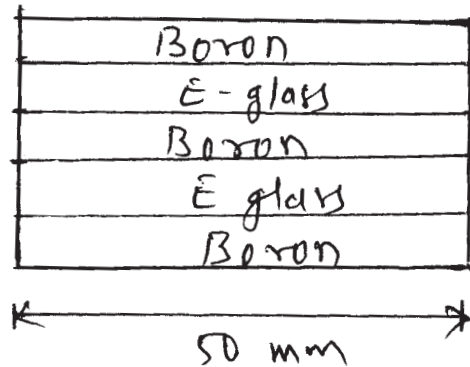 Boron
E-glass
Boron
E glass
Boron
50 mm